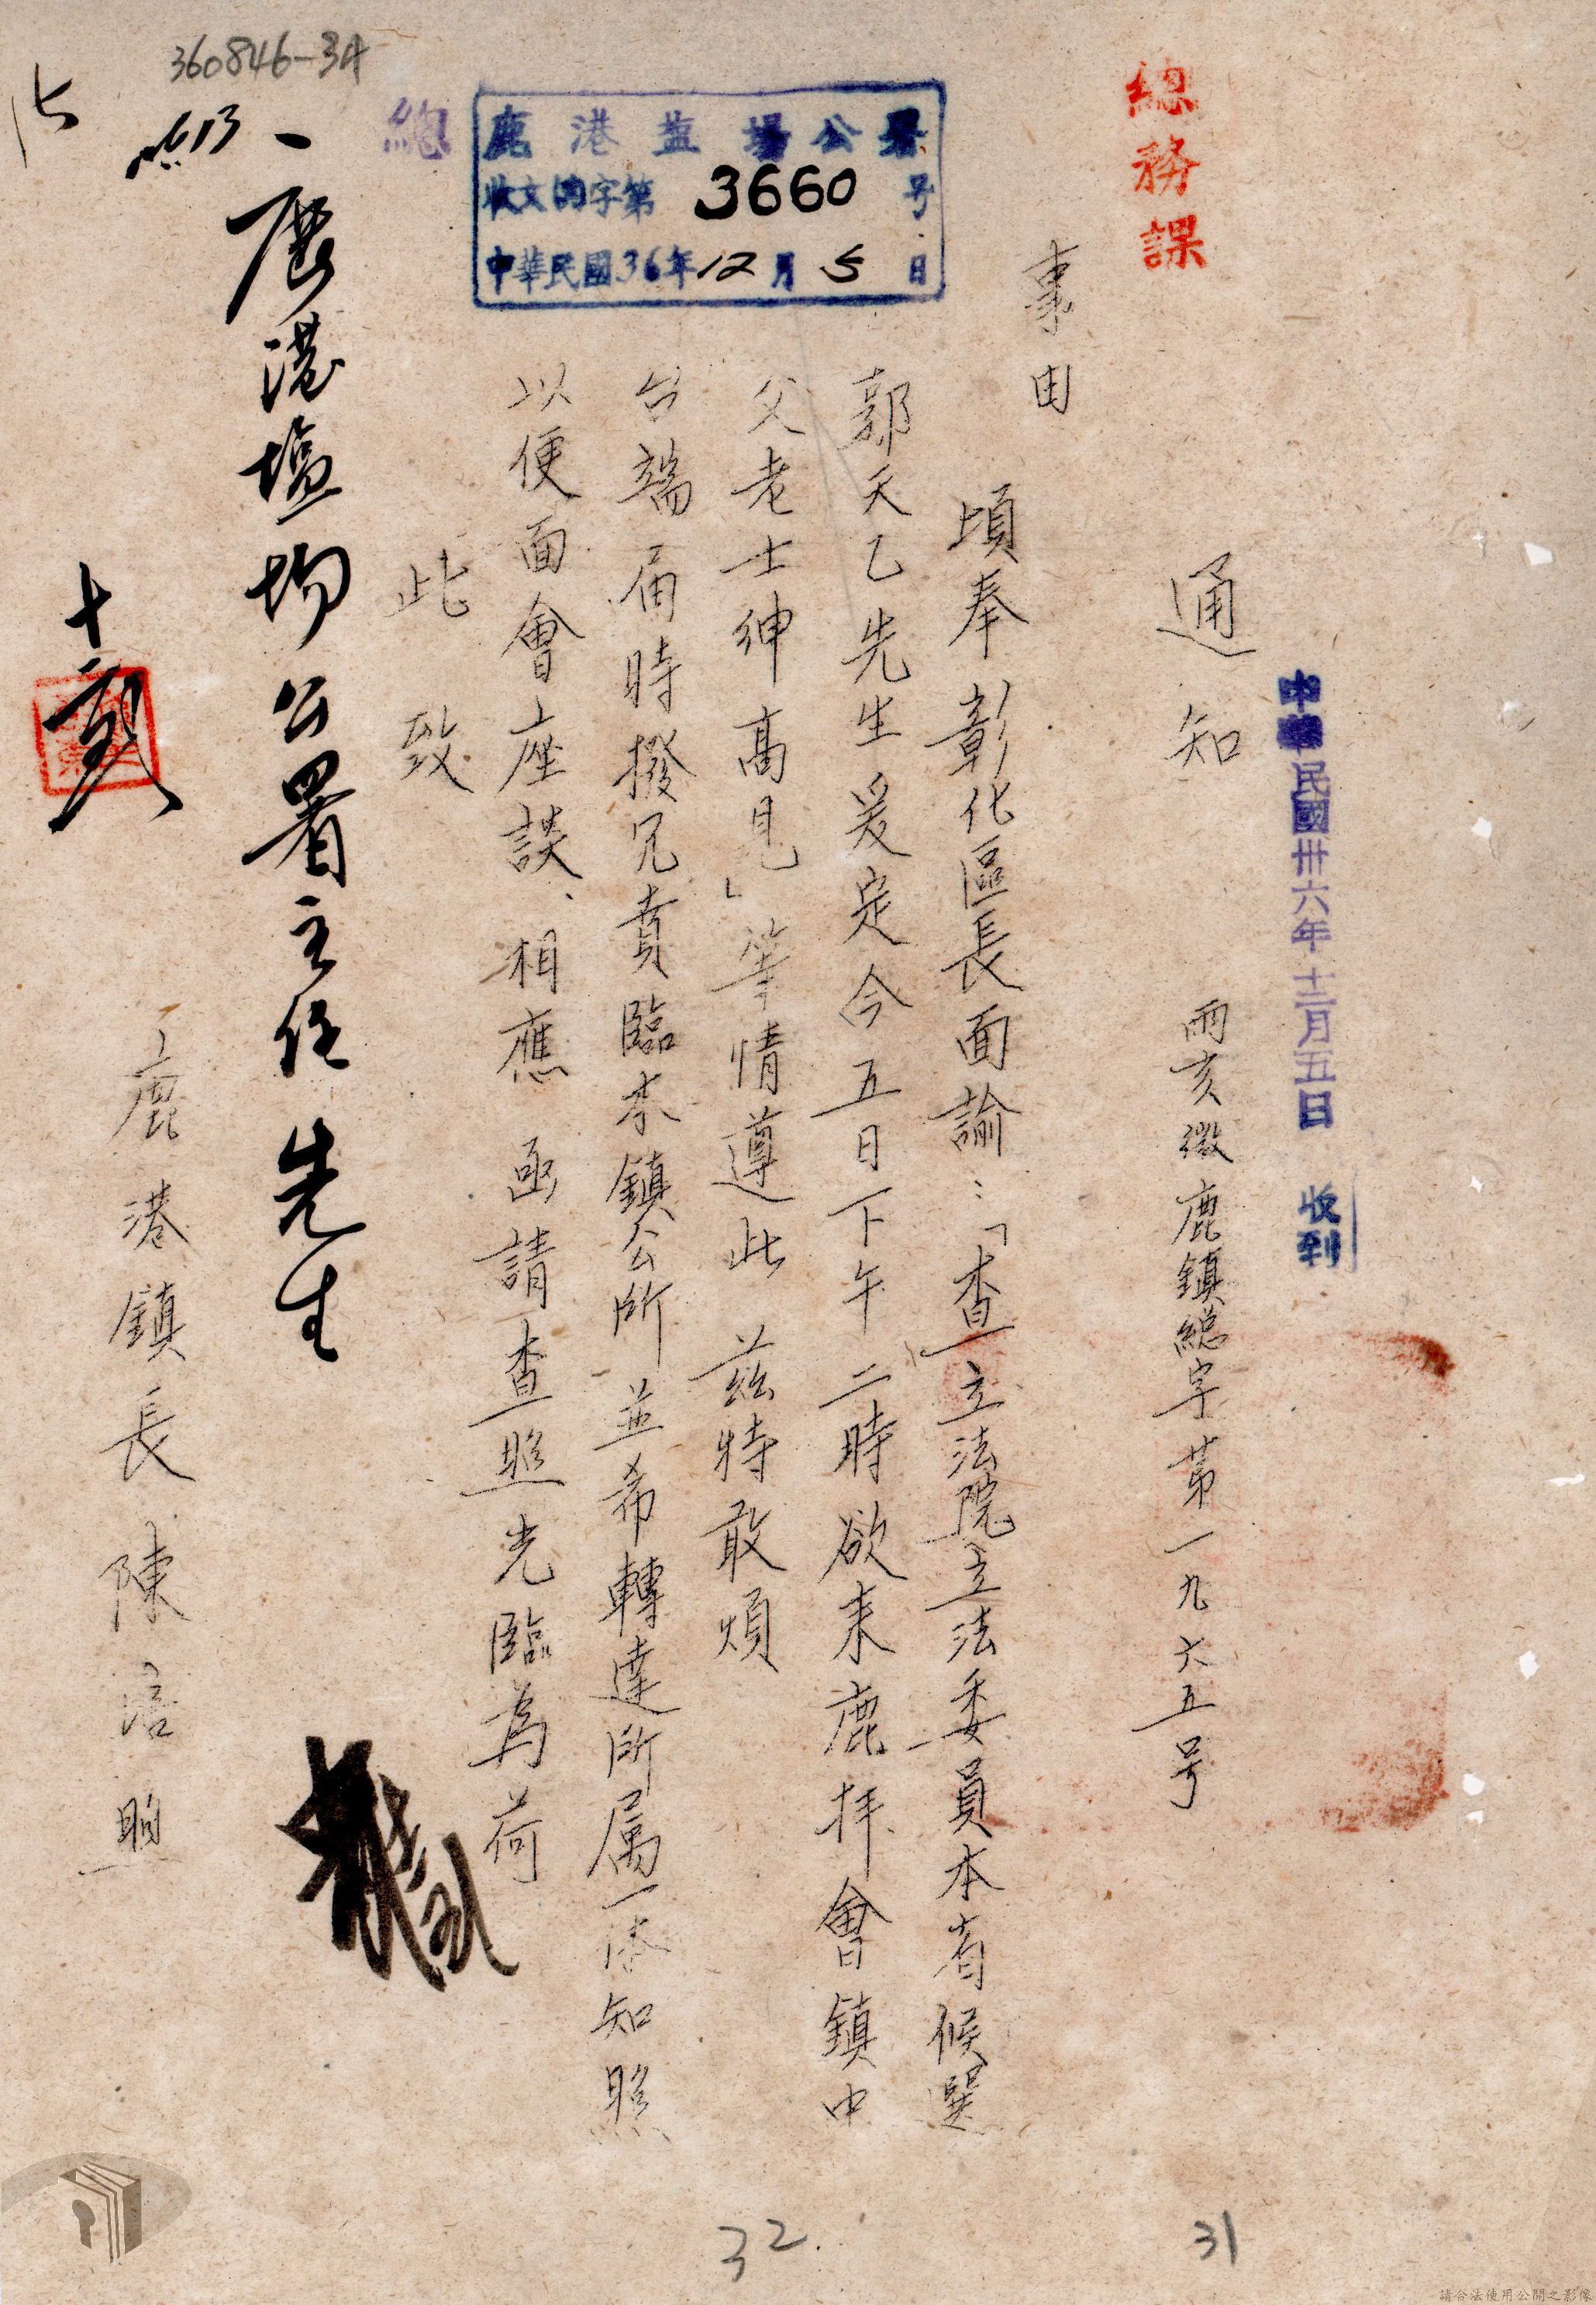 總務課
中華民國卅六年十二月五日 收到
通知 兩亥微鹿鎮總字第一九六五号
事由
頃奉 彰化區長面諭：「查立法院立法委員本省候選
郭天乙先生爰定今五日下午二時欲来鹿拝會鎮中
父老士紳高見」等情遵此 茲特敢煩
台端届時撥冗賁臨本鎮公所並希轉達所属一体知照
以便面會座談、相應 函請查照光臨為荷
此致
鹿港塩場公署主任 先生
鹿港鎮長陳 煦
總
鹿港盐場公署
收文 字第 3660 号
中華民國36年12月5日
360846-34
613
31
32
請合法使用公開之影像